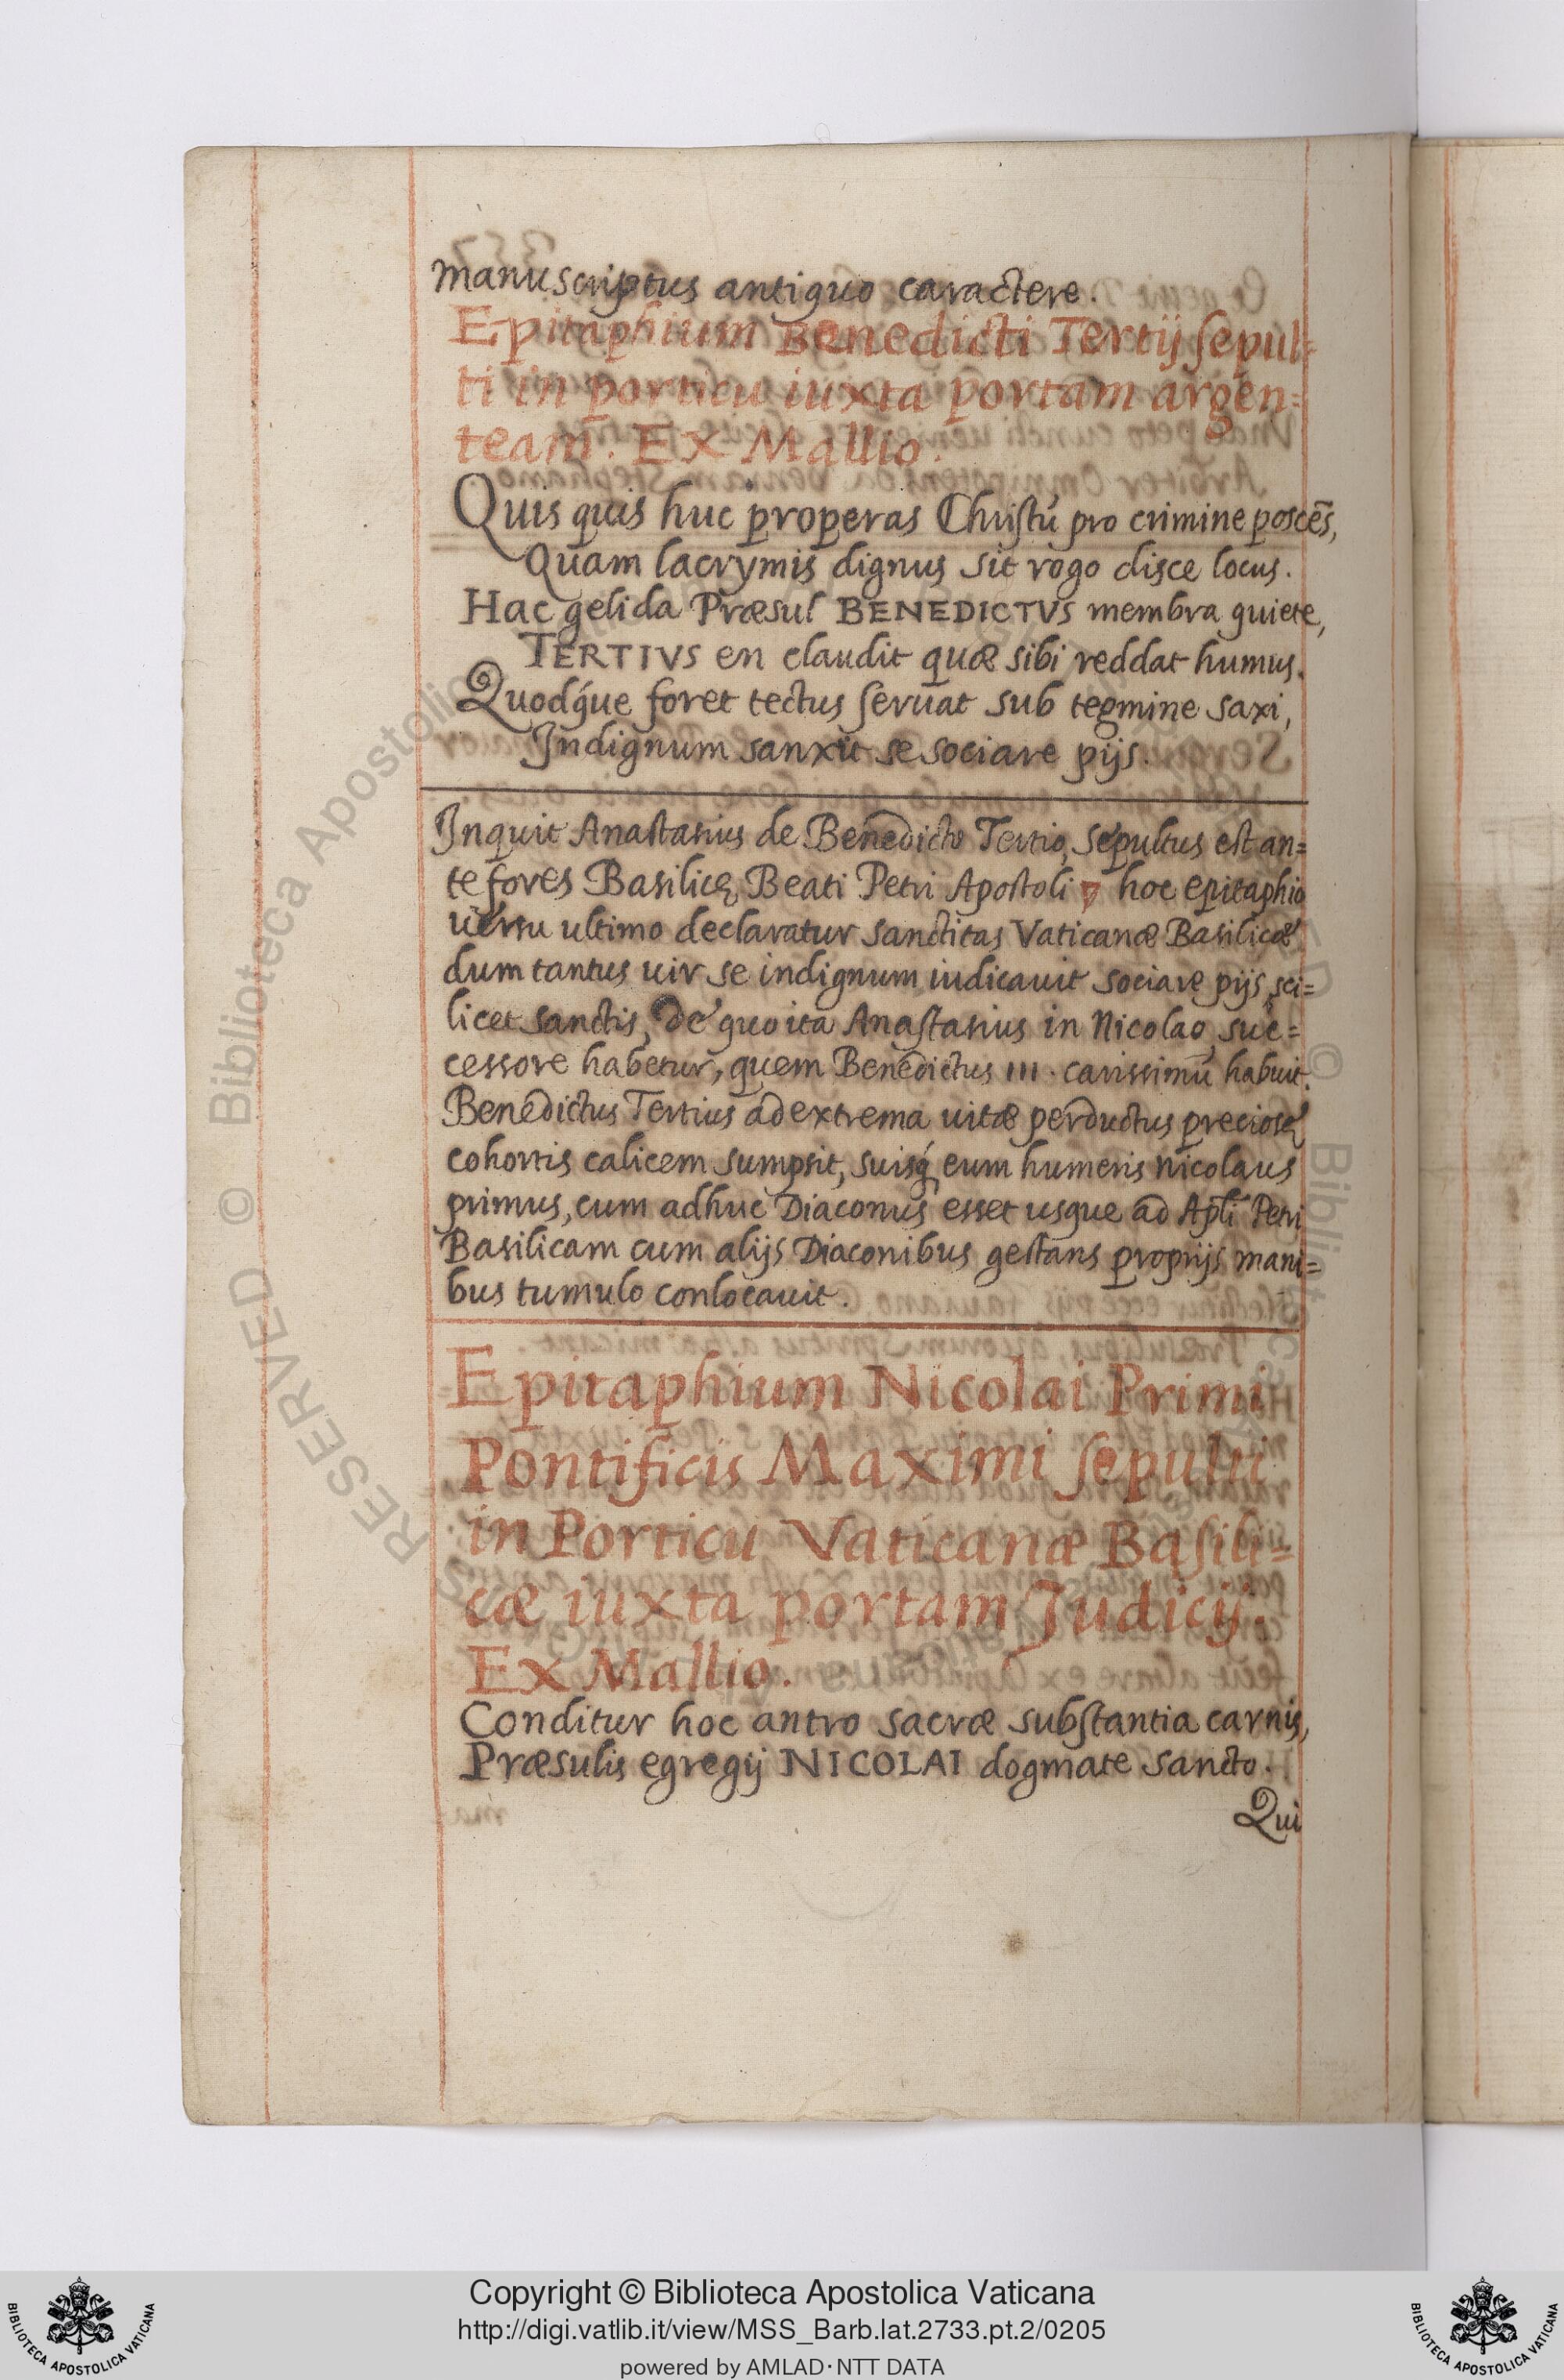 manuscriptus antiquo caractere.
Epitaphium Benedicti Tertij sepul=
ti in porticu iuxta portam argen=
team. Ex Mallio.
Quis quis huc properas Christũ pro crimine poscẽs,
Quam lacrymis dignus sit rogo disce locus.
Hac gelida Præsul BENEDICTVS membra quiete,
TERTIVS en claudit quæ sibi reddat humus.
Quodq́ue foret tectus seruat sub tegmine saxi,
Indignum sanxit se sociare pijs.
Inquit Anastasius de Benedicto Tertio, Sepultus est an=
te fores Basilicę Beati Petri Apostoli hoc epitaphio
uersu ultimo declaratur sanctitas Vaticanæ Basilicæ
dum tantus uir se indignum iudicauit sociare pijs, sci=
licet sanctis, de quo ita Anastasius in Nicolao, suc=
cessore habetur, quem Benedictus III. carissimũ habuit.
Benedictus Tertius ad extrema uitæ perductus preciosę
cohortis calicem sumpsit, suisq́ eum humeris Nicolaus
primus, cum adhuc Diaconus esset usque ad Apli Petri
Basilicam cum alijs Diaconibus gestans proprijs mani=
bus tumulo conlocauit.
Epitaphium Nicolai Primi
Pontificis Maximi sepulti
in Porticu Vaticanæ Basili=
cæ iuxta portam Judicij.
Ex Mallio.
Conditur hoc antro sacræ substantia carnis,
Præsulis egregij NICOLAI dogmate sancto.
Qui
Copyright © Biblioteca Apostolica Vaticana
http://digi.vatlib.it/view/MSS_Barb.lat.2733.pt.2/0205
powered by AMLAD·NTT DATA
BIBLIOTECA APOSTOLICA VATICANA
BIBLIOTECA APOSTOLICA VATICANA